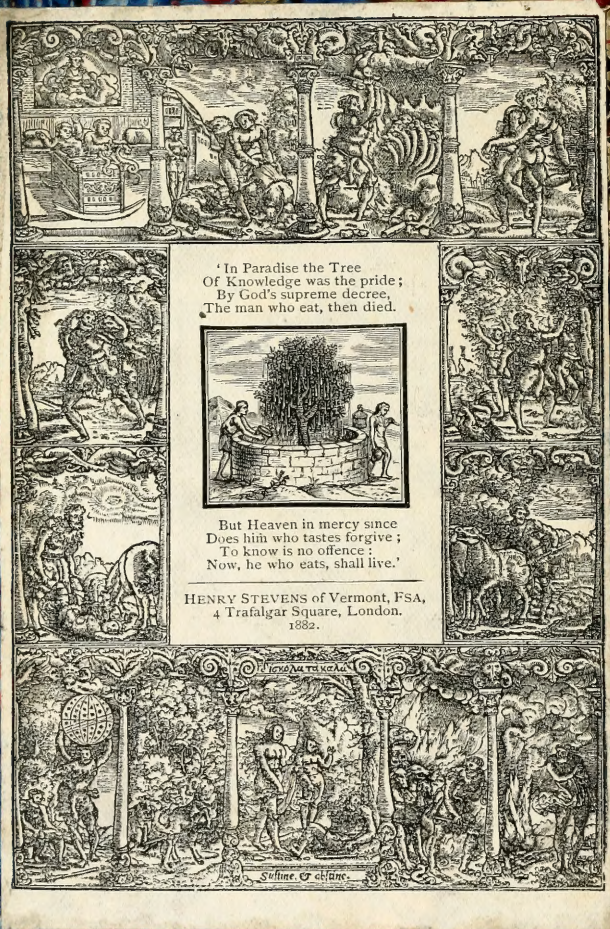 'In Paradise the Tree
Of Knowledge was the pride;
By God's supreme decree,
The man who eat, then died.
But Heaven in mercy since
Does him who tastes forgive;
To know is no offence:
Now, he who eats, shall live.'
HENRY STEVENS of Vermont, FSA,
4 Trafalgar Square, London.
1882.
τὰ καλὰ
Sustine. & abstine.